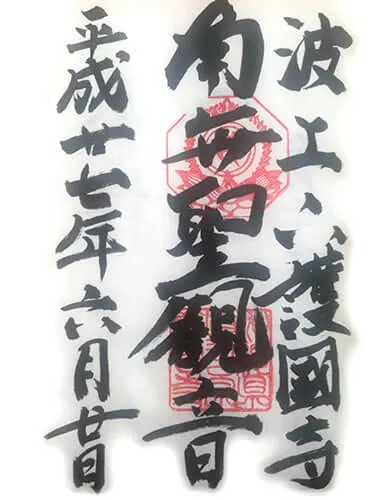 波上山護國寺
南無聖観音
平成廿七年六月廿日